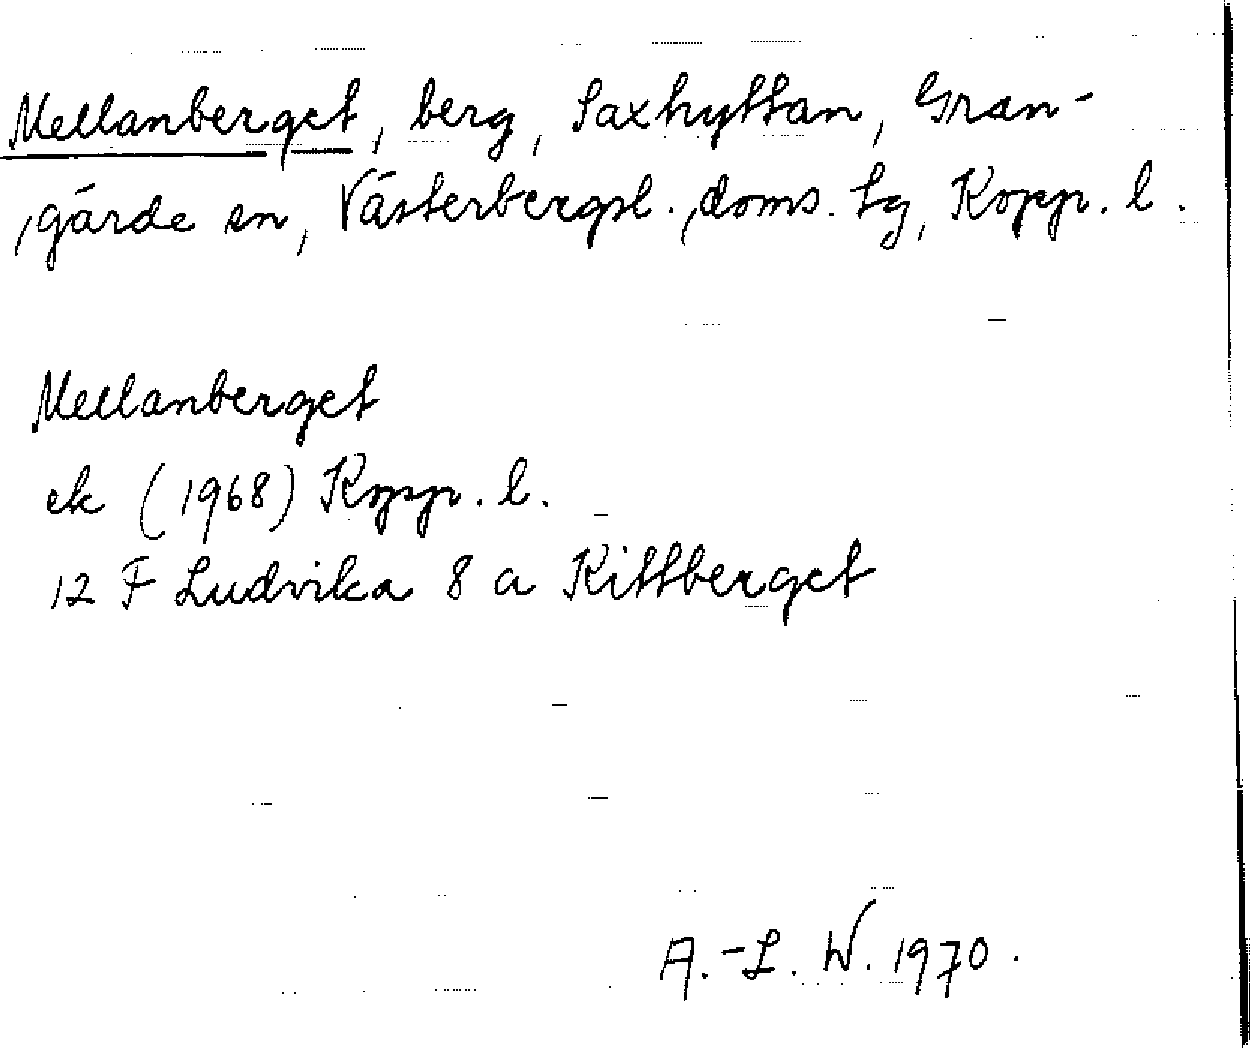 Mellanberget, berg, Saxhyttan, Gran-
gärde sn, Västerbergsl. doms. tg, Kopp. l.
Mellanberget
ek (1968) Kopp. l.
12 F Ludvika 8 a Kittberget
A.-L. W. 1970.